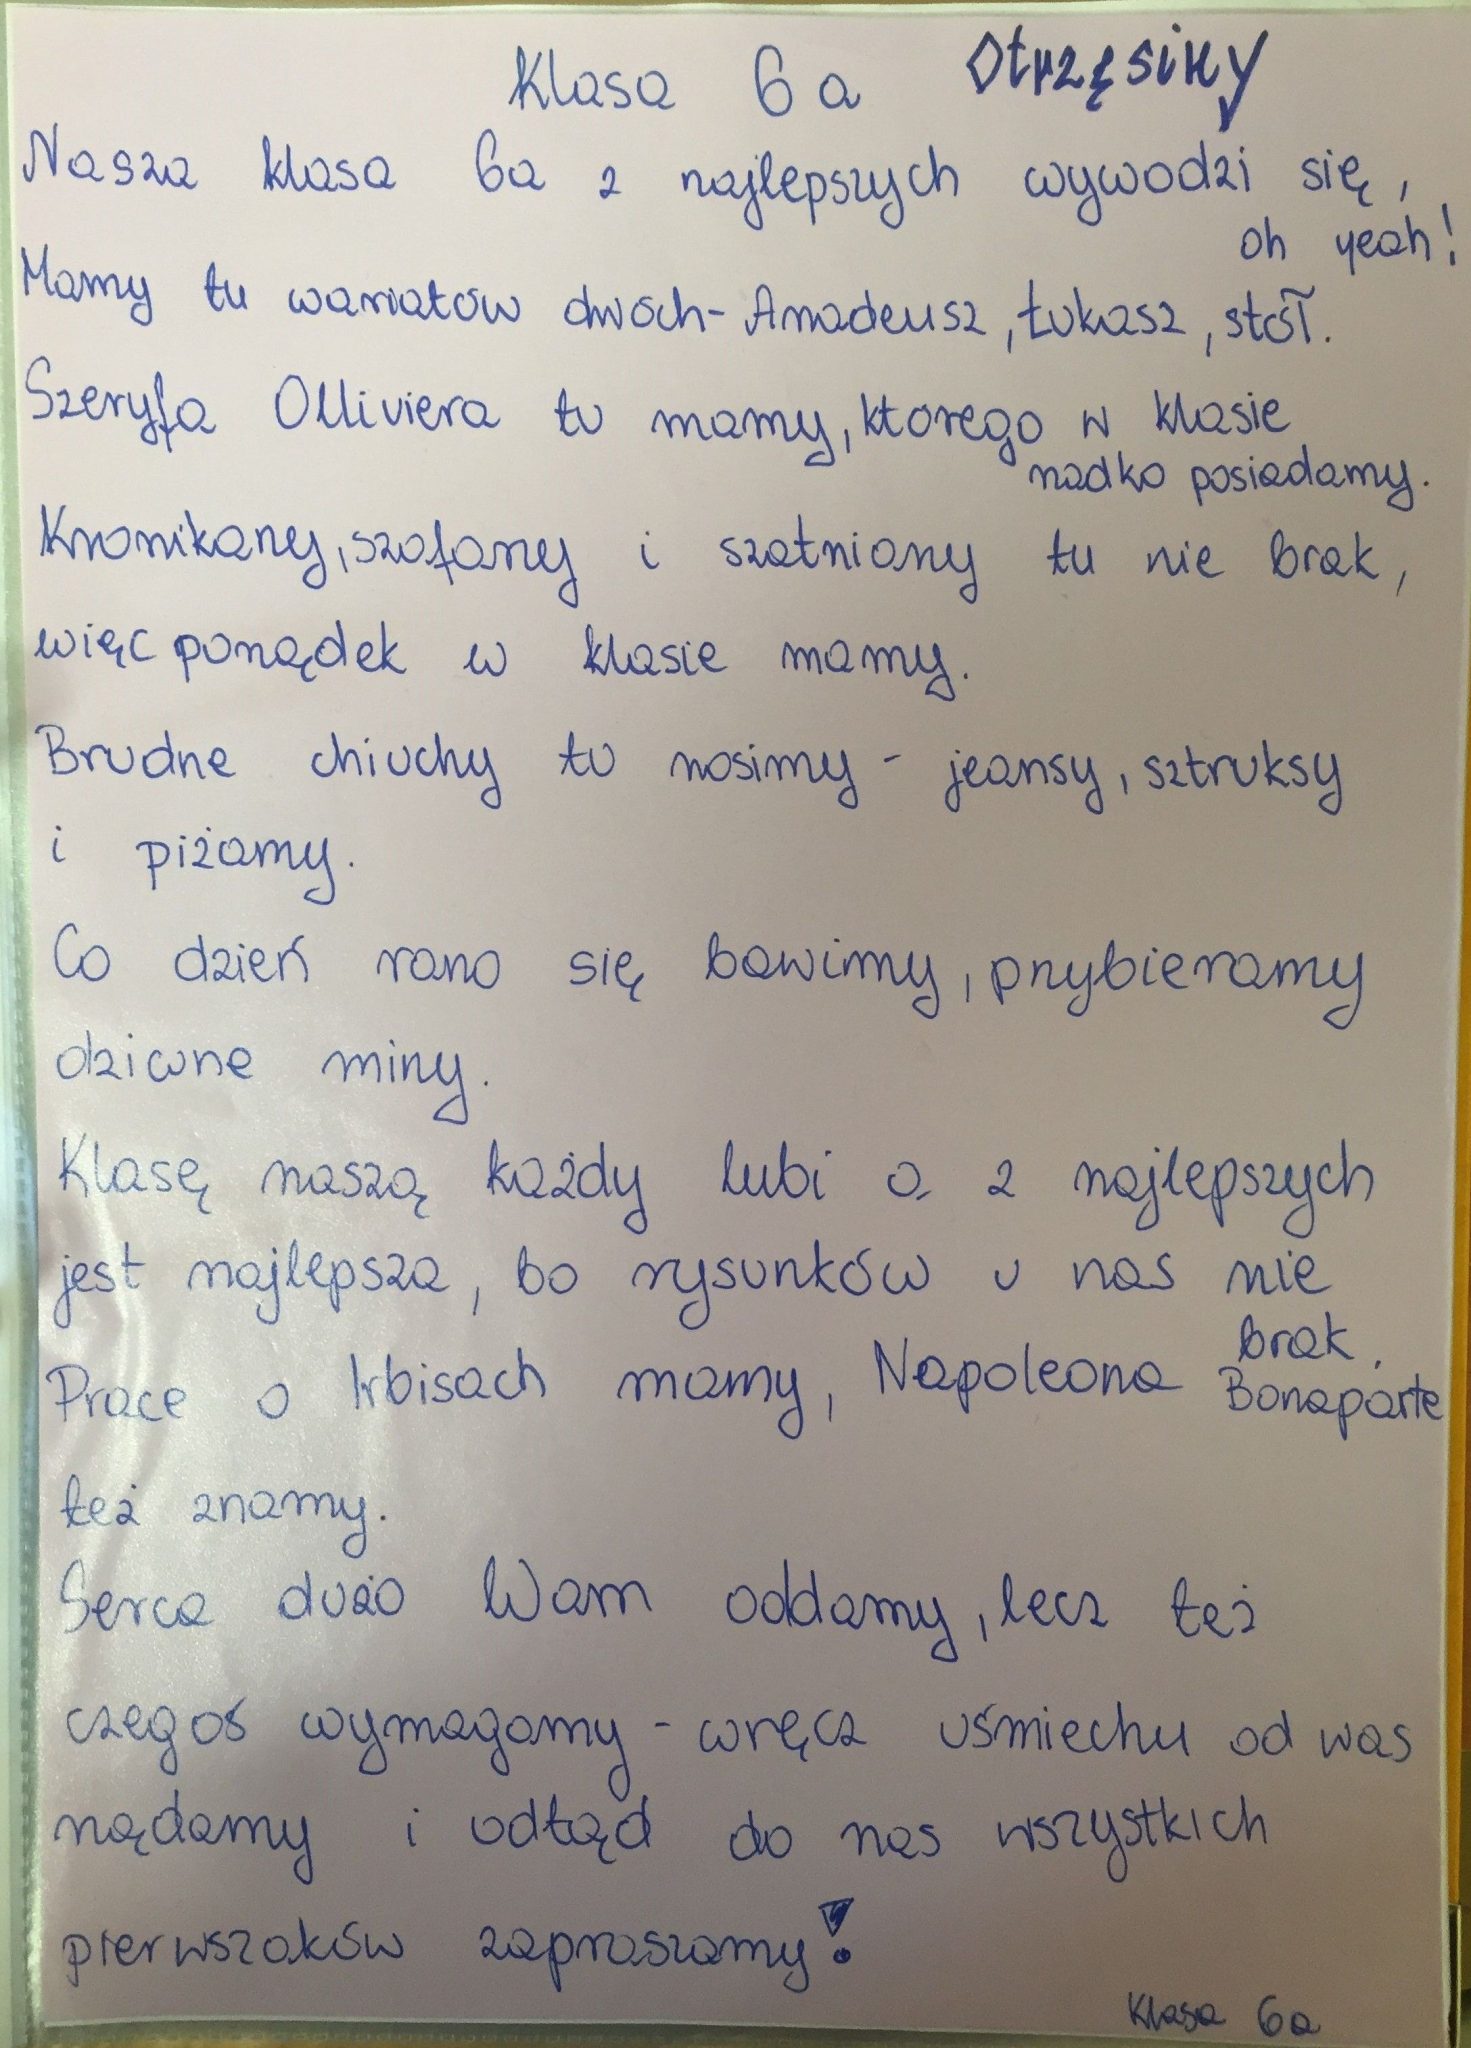 Klasa 6a Otrzęsiny
Nasza klasa 6a z najlepszych wywodzi się,
oh yeah!
Mamy tu wariatów dwóch - Amadeusz, Łukasz, stół.
Szeryfa Olliviera tu mamy, którego w klasie
rzadko posiadamy.
Kronikarzy, szafarzy i szatniarzy tu nie brak,
więc porządek w klasie mamy.
Brudne chiuchy tu nosimy - jeansy, sztruksy
i piżamy.
Co dzień rano się bawimy, przybieramy
dziwne miny.
Klasę naszą każdy lubi a z najlepszych
jest najlepsza, bo rysunków u nas nie
brak.
Prace o Irbisach mamy, Napoleona Bonaparte
też znamy.
Serca dużo Wam oddamy, lecz też
czegoś wymagamy - wręcz uśmiechu od was
rządamy i odtąd do nas wszystkich
pierwszaków zapraszamy!
Klasa 6a